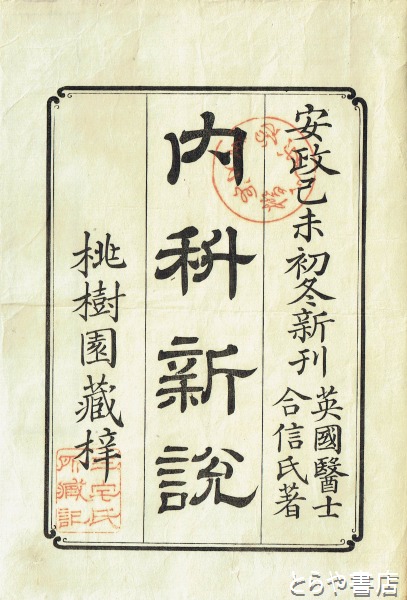 安政己未初冬新刊
英國醫士
合信氏著
内科新說
桃樹園藏梓
三宅氏
所藏記
とらや書店